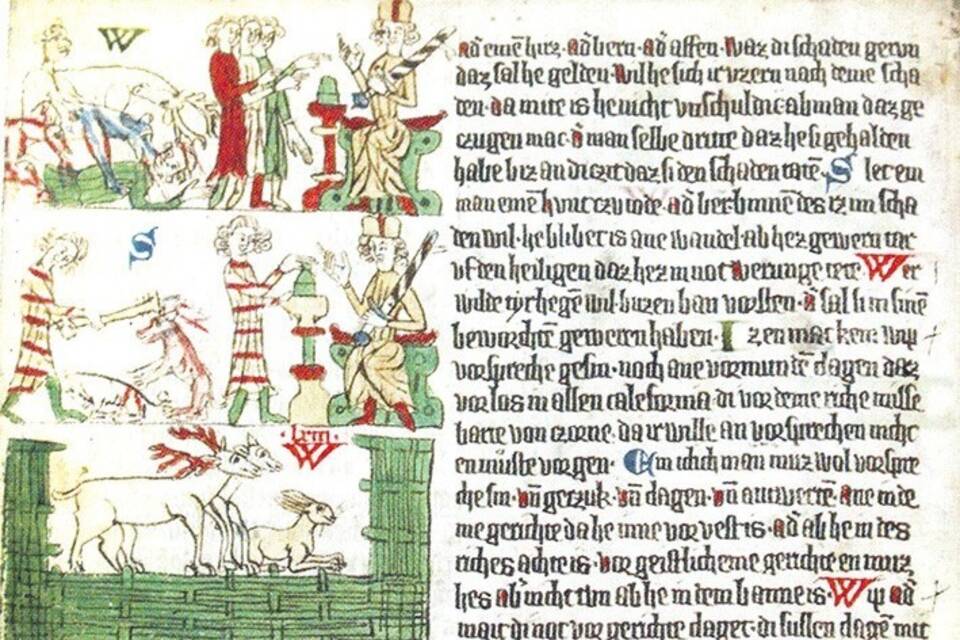 W
S
lxiii.
W
ad̕ einē hirz. ad̕ bern. ad̕ affen. Waz di schaden
daz sal he gelden. Wil he sich ir uzern nach deme scha
den. da mite is he nicht vnschuldic ab man daz ge
czugen mac. selbe dritte daz he si gehalden
habe biz an di czit daz si den schaden tatē. S let ein
man eme hunt czu tode. ad̕ ber binnē des iz im scha
den wil. he blibet is ane wandel ab hez gewern tar
vf den heiligen daz hez in not werunge tete. W er
wilde tyr hegē wil buzen ban vorsten. d̕ sal si in sinē
bewordtē geweren haben. I z en mac kein wip
vorspreche gesin. noch ane vormunde clagen daz
vorlos in allen caleforma. di vor deme riche misse
barte von czorne. da ir wille an vorsprechen nicht
en muste vorgen. E in iclich man muz wol vorspre
che sin. vn̄ geczuk. vn̄ clagen. vn̄ antwertē. ane in de
me gerichte da he inne vorvest is. ad̕ ab he in des
riches achte is. vor geistlicheme gerichte en muz
hes ab̕ nicht tun ab he in dem banne is. W ip ad̕
mait di not vor gerichte claget. di sullen clagē mit